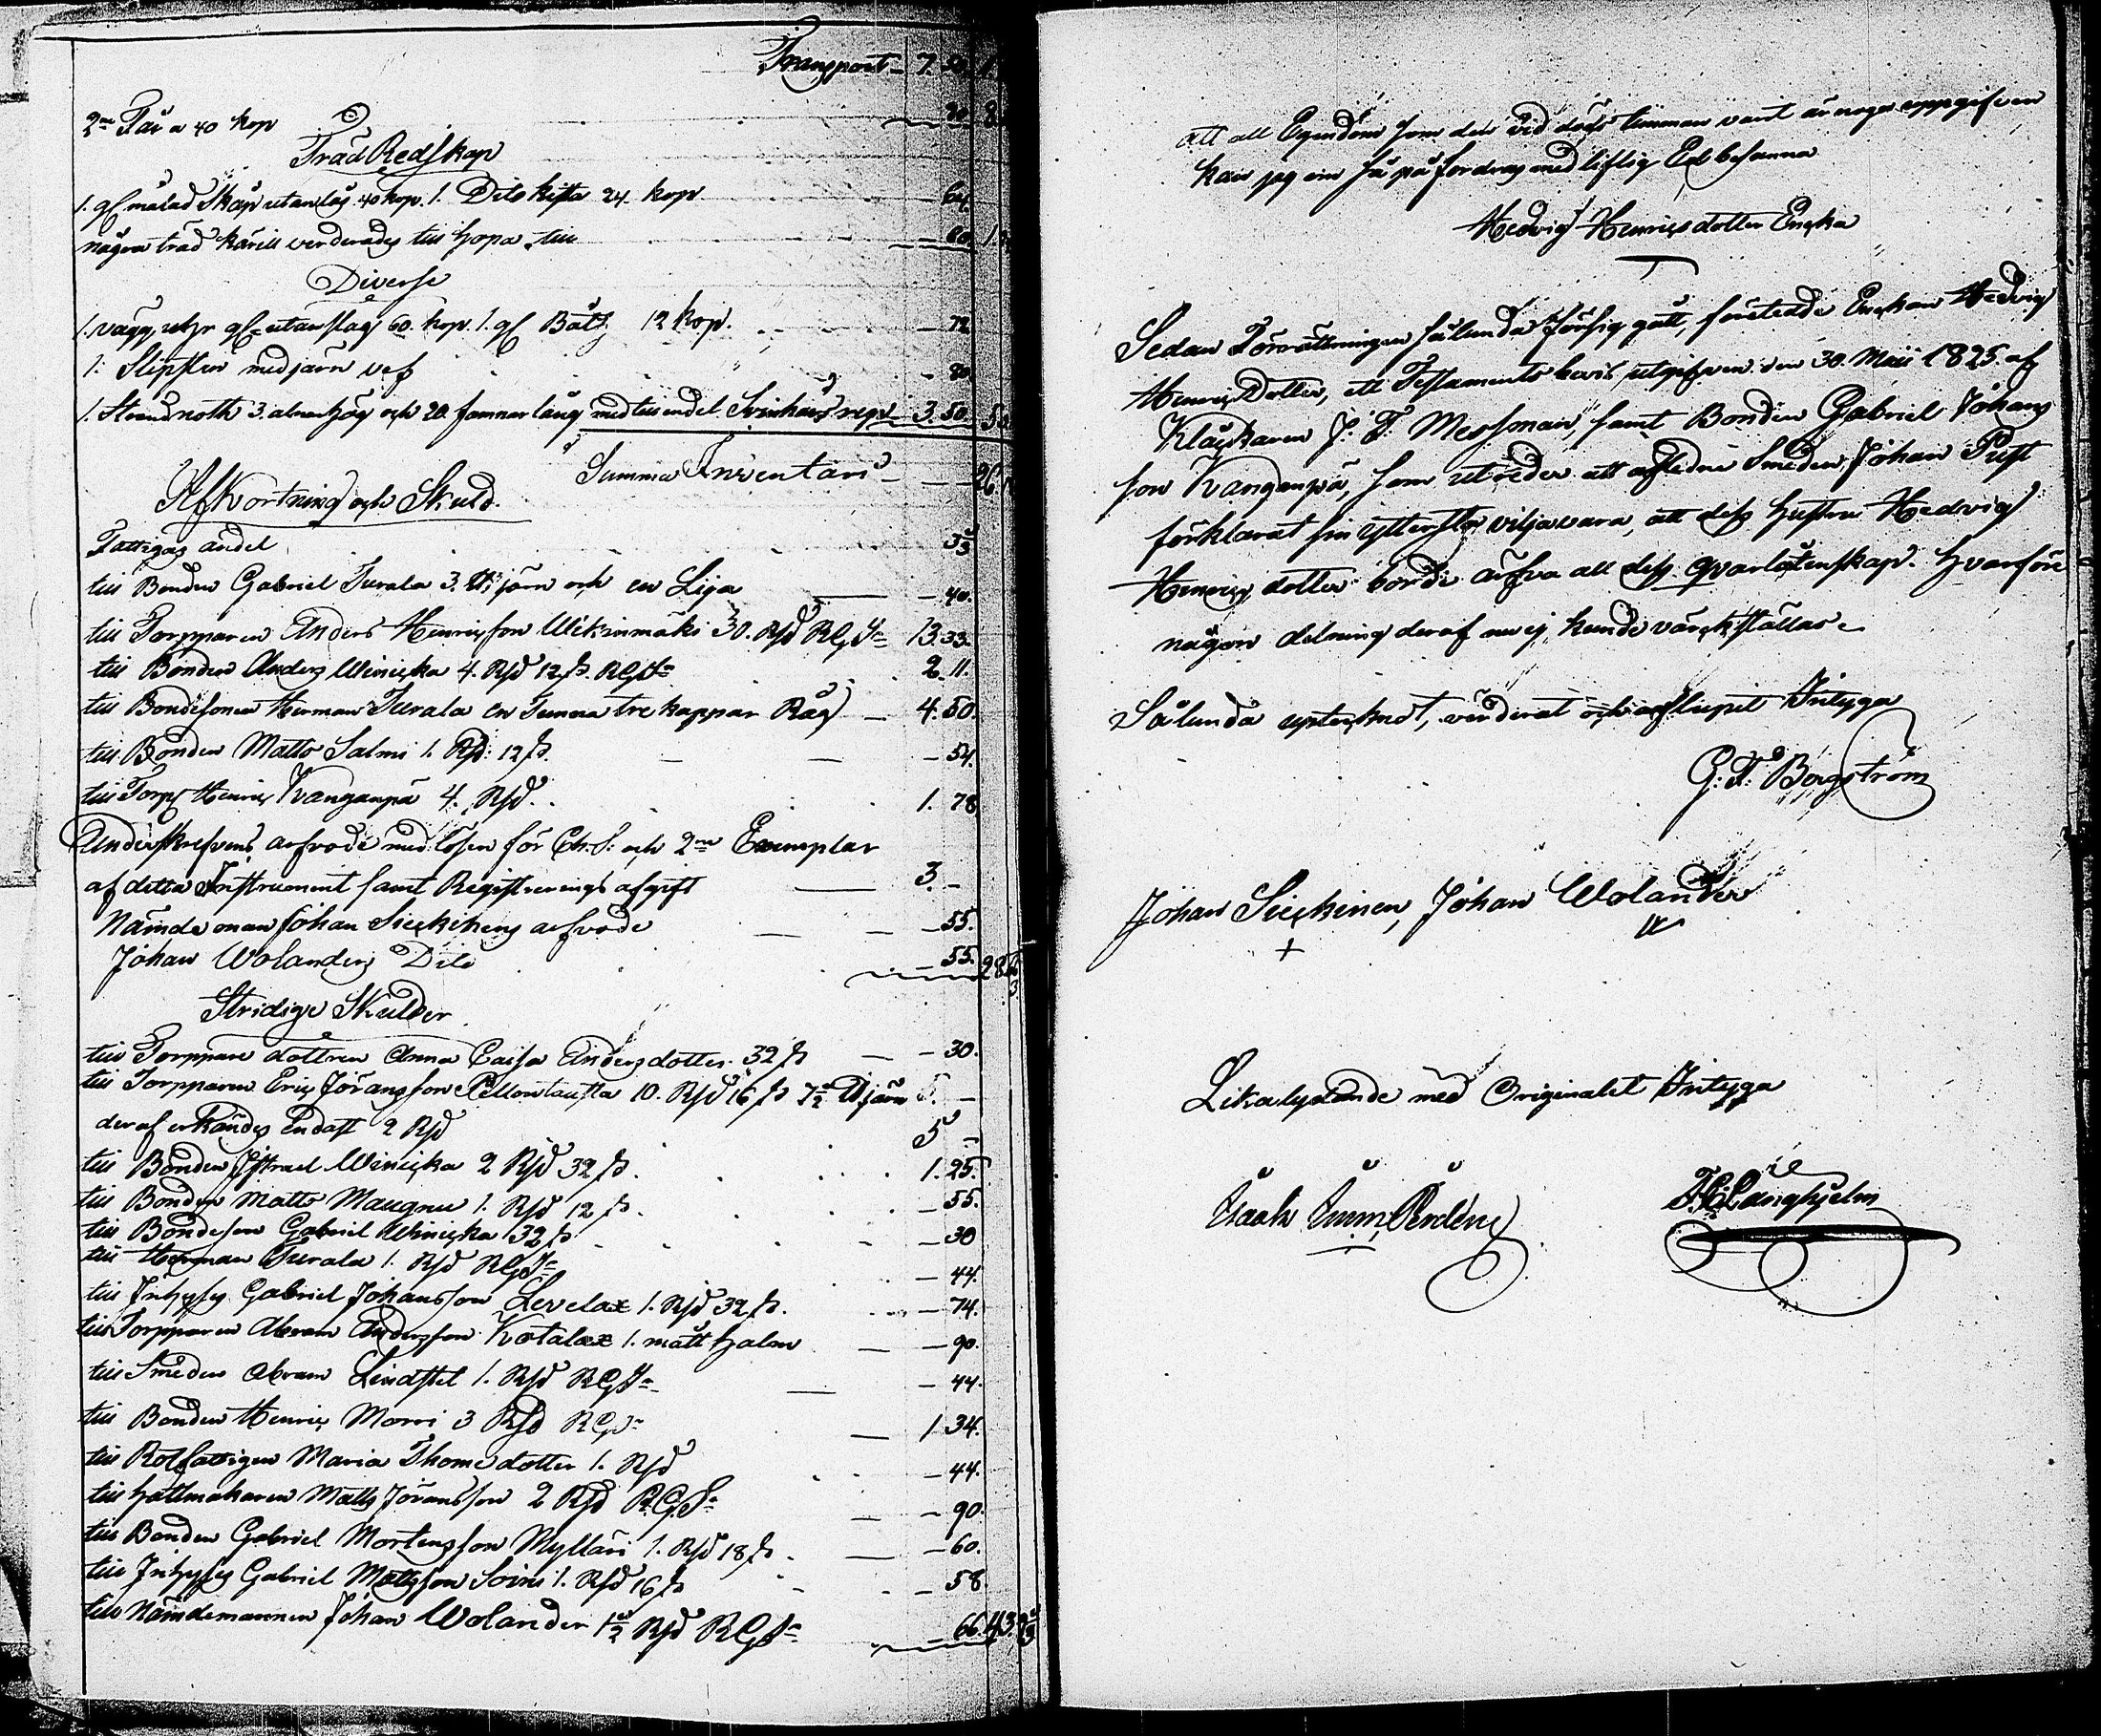 Transport 7. 50
2ne Får a 40 kop 80
Träd Redskap
1. gl målad Skåp utan lås 40 kop. 1. Dito kista 24. kop 64
några träd kärill verderades till hopa till 60
Diverse
1. vägg uhr gl utan slag 60. kop. 1. gl Båt 12 kop. 72
1. Slipsten med järn vef 80
1. Strandnoth 3. alnar hög och 20. famnar lång med till en del Svinhårs rep 3. 50.
Summa Inventari 26
Afkortning och Skuld.
Fattigas andel
till Bonden Gabriel Turala 3. ℔ järn och en Lija 40.
till Torpparen Anders Henricsson Ulikinmäki 30. Rsd RGS 13. 33.
till Bonden Anders Winicka 4. Rsd 12 s. RGS 2. 11.
till Bondesonen Herman Turala en Tunna tre kappar Råg 4. 50.
till Bonden Matts Salmi 1. Rsd: 12 s. 54.
till Torp Henric Kanganpä 4. Rsd. 1. 78
Underskrefvens arfvode med lösen för Ch. S. och 2ne Exemplar
af detta Instrument samt Registrerings afgift 3. –
Nämndeman Johan Sieckinens arfvode 55.
Johan Wolanders Dito 55. 28
Stridige Skulder
till Torppare dottren Anna Caisa Andersdotter 32 s 30.
till Torpparen Eric Jöransson Pellontausta 10. Rsd 16 s 7½ ℔ järn 5. –
deraf erkändes Endast 2 Rsd
till Bonden Israel Winicka 2 Rsd 32 s. 1. 25.
till Bonden Matts Maugnu 1. Rsd 12 s. 55.
till Bondeson Gabriel Winicka 32 s 30
till Herman Turala 1. Rsd RGS 44.
till Inhyses Gabriel Johansson Levelax 1. Rsd 32 s. 74.
till Torpparen Abram Andersson Katalax 1. mått halm 90.
till Smeden Abram Lindstet 1. Rsd RGS 44.
till Bonden Henric Morri 3 Rsd RGS 1 34.
till Rotfattigen Maria Thomedotter 1. Rsd 44.
till Hattmakaren Matts Jöransson 2 Rsd R.G.S. 90.
till Bonden Gabriel Mortensson Mylläri 1. Rsd 18 s. 60.
till Inhyses Gabriel Mattsson Soini 1. Rsd 16 s 58.
till Nämndemannen Johan Wolander 1½ Rsd RGS 66.
att all Egendom som der vid döds timman varit är noga uppgifven
kan jag om så påfordras med liflig Ed besanna
Hedvig Henricsdotter Enka
Sedan Förrättningen sålunda försig gått, företedde Enkan Hedvig
Henrics Dotter, ett Testaments bevis utgifven den 30. Maii 1825. af
Klåckaren J. F. Messman, samt Bonden Gabriel Johans
son Kanganpä, som utreder att afledne Smeden Johan Pust
förklarat sin yttersta vilja vara, att dess hustru Hedvig
Henrics dotter borde ärfva all dess qvarlåtenskap. hvarföre
någon delning deraf nu ej kunde värckställas.
Sålunda upteknat, värderat och aflupit Intyga
G. F. Bergström
Johan Sieckinen, Johan Wolander
+
Likalydande med Originalet Intyga